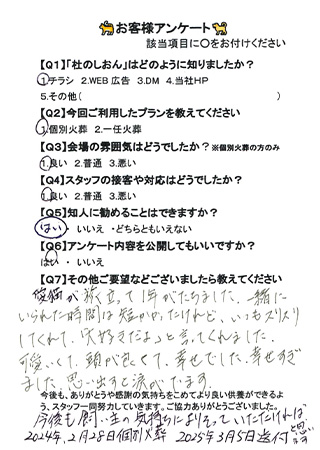 お客様アンケート
該当項目に〇をお付けください
【Q1】「杜のしおん」はどのように知りましたか?
1.チラシ 2.WEB広告 3.DM 4.当社HP
5.その他( )
【Q2】今回ご利用したプランを教えてください
1.個別火葬 2.一任火葬
【Q3】会場の雰囲気はどうでしたか?※個別火葬の方のみ
1.良い 2.普通 3.悪い
【Q4】スタッフの接客や対応はどうでしたか?
1.良い 2.普通 3.悪い
【Q5】知人に勧めることはできますか?
はい ・ いいえ ・どちらともいえない
【Q6】アンケート内容を公開してもいいですか?
はい ・ いいえ
【Q7】その他ご要望などございましたら教えてください
愛猫が旅立って1年がたちました。一緒に
いられた時間は短かかったけれど、いつもスリスリ
してくれて、大好きだよ♪と言ってくれました。
可愛いくて、頭が良くて、幸せでした。幸せすぎ
ました。思い出すと涙がでます。
今後も、ありがとうや感謝の気持ちをこめてより良い供養ができるよ
う、スタッフ一同努力していきます。ご協力ありがとうございました。
今後も飼い主の気持ちによりそっていただければと思い
ます
2024年,2月28日個別火葬 2025年3月5日送付